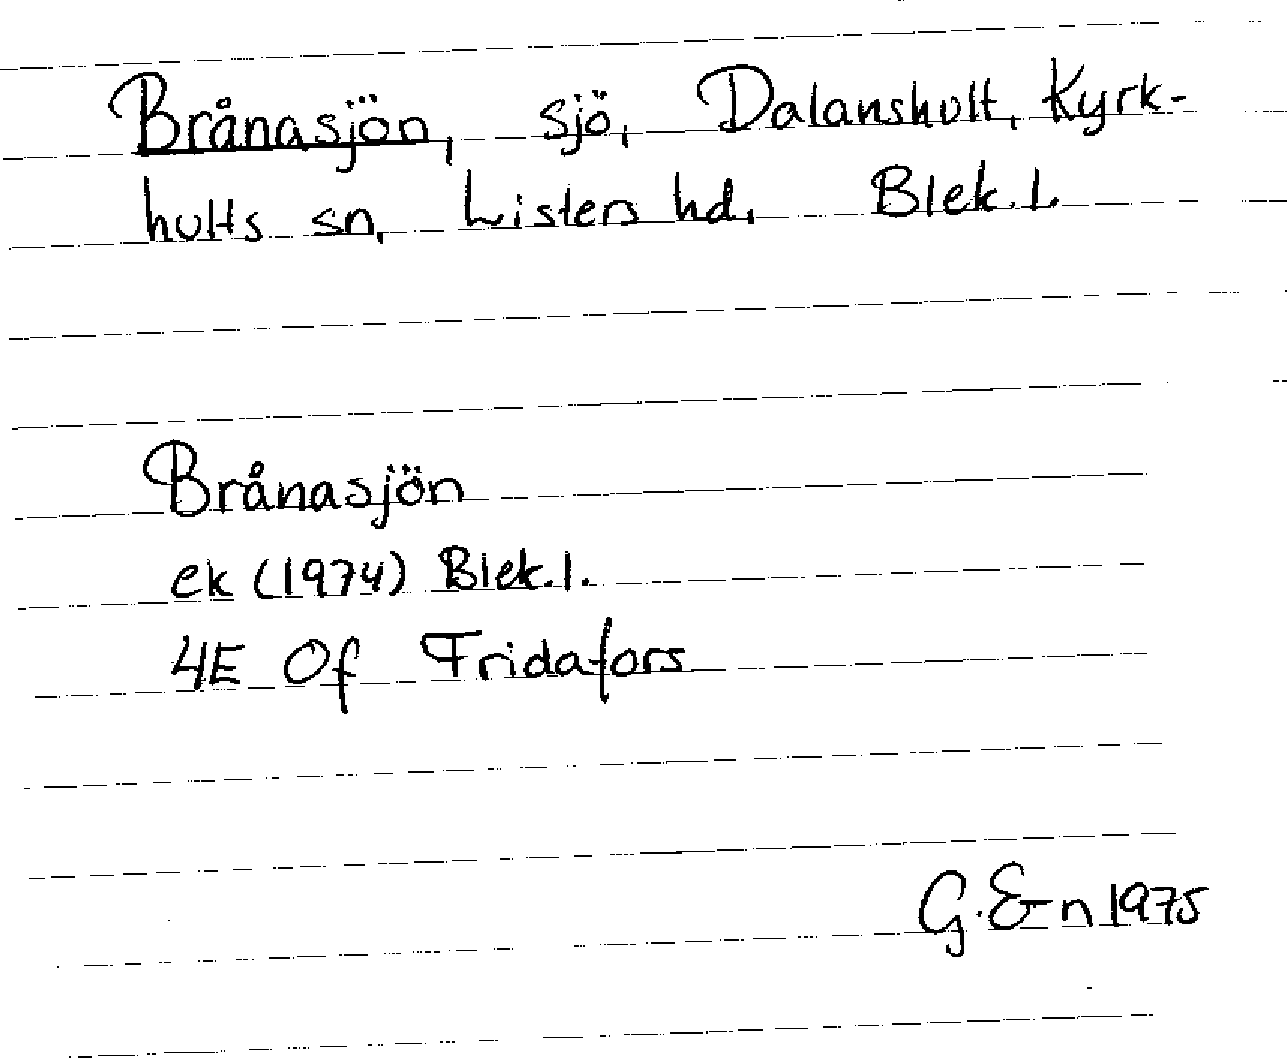 Brånasjön, sjö, Dalanshult, Kyrk-
hults sn, Listers hd. Blek. l.
Brånasjön
ek (1974) Blek. l.
4E 0f Fridafors
G. E-n 1975